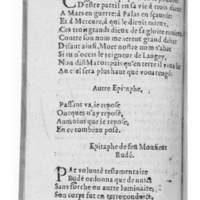 C'estre partil en sa vie à trois dieux
A Mars en guerre: à Palas en sçavoir
Et à Mercure, à qui le dieult mieux.
Ces trois grands dieux de sa gloire
Contre son nom me feront grand debat
Disant ainsi, Mort nostre nom n'abat
Si tu occis le seigneur de Langey.
Non dis Marot: pais
Au ciel sera plus haut que vous rengé
Autre Epitaphe,
Passant va, ie repose
Oncques n'ay reposé,
Aumoins icy ie repose,
En ce tombeau posé.
Epitaphe de feu Monsieur
Budé.
PAr volunté testamentaire
Budé ordonna que de nuict
Sans torche ou autre luminaire,
Son corps fut en terre